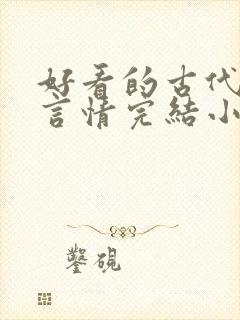 好看的古代
言情完結小
鑿硯